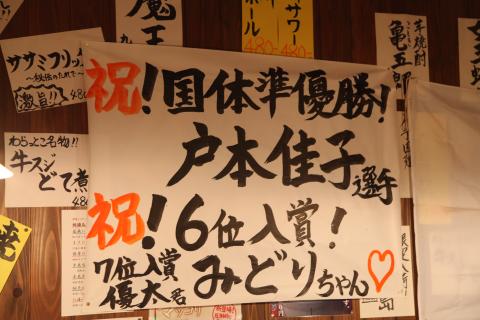 魔王
サワー
480-
ボール
480-
芋焼酎
亀五郎
ササミフリッ
〜秘伝のたれで〜
激旨!!
わらっとこ名物!!
牛スジ
どて煮
祝!国体準優勝!
戸本佳子選手
祝!6位入賞!
7位入賞
優太君
みどりちゃん♡